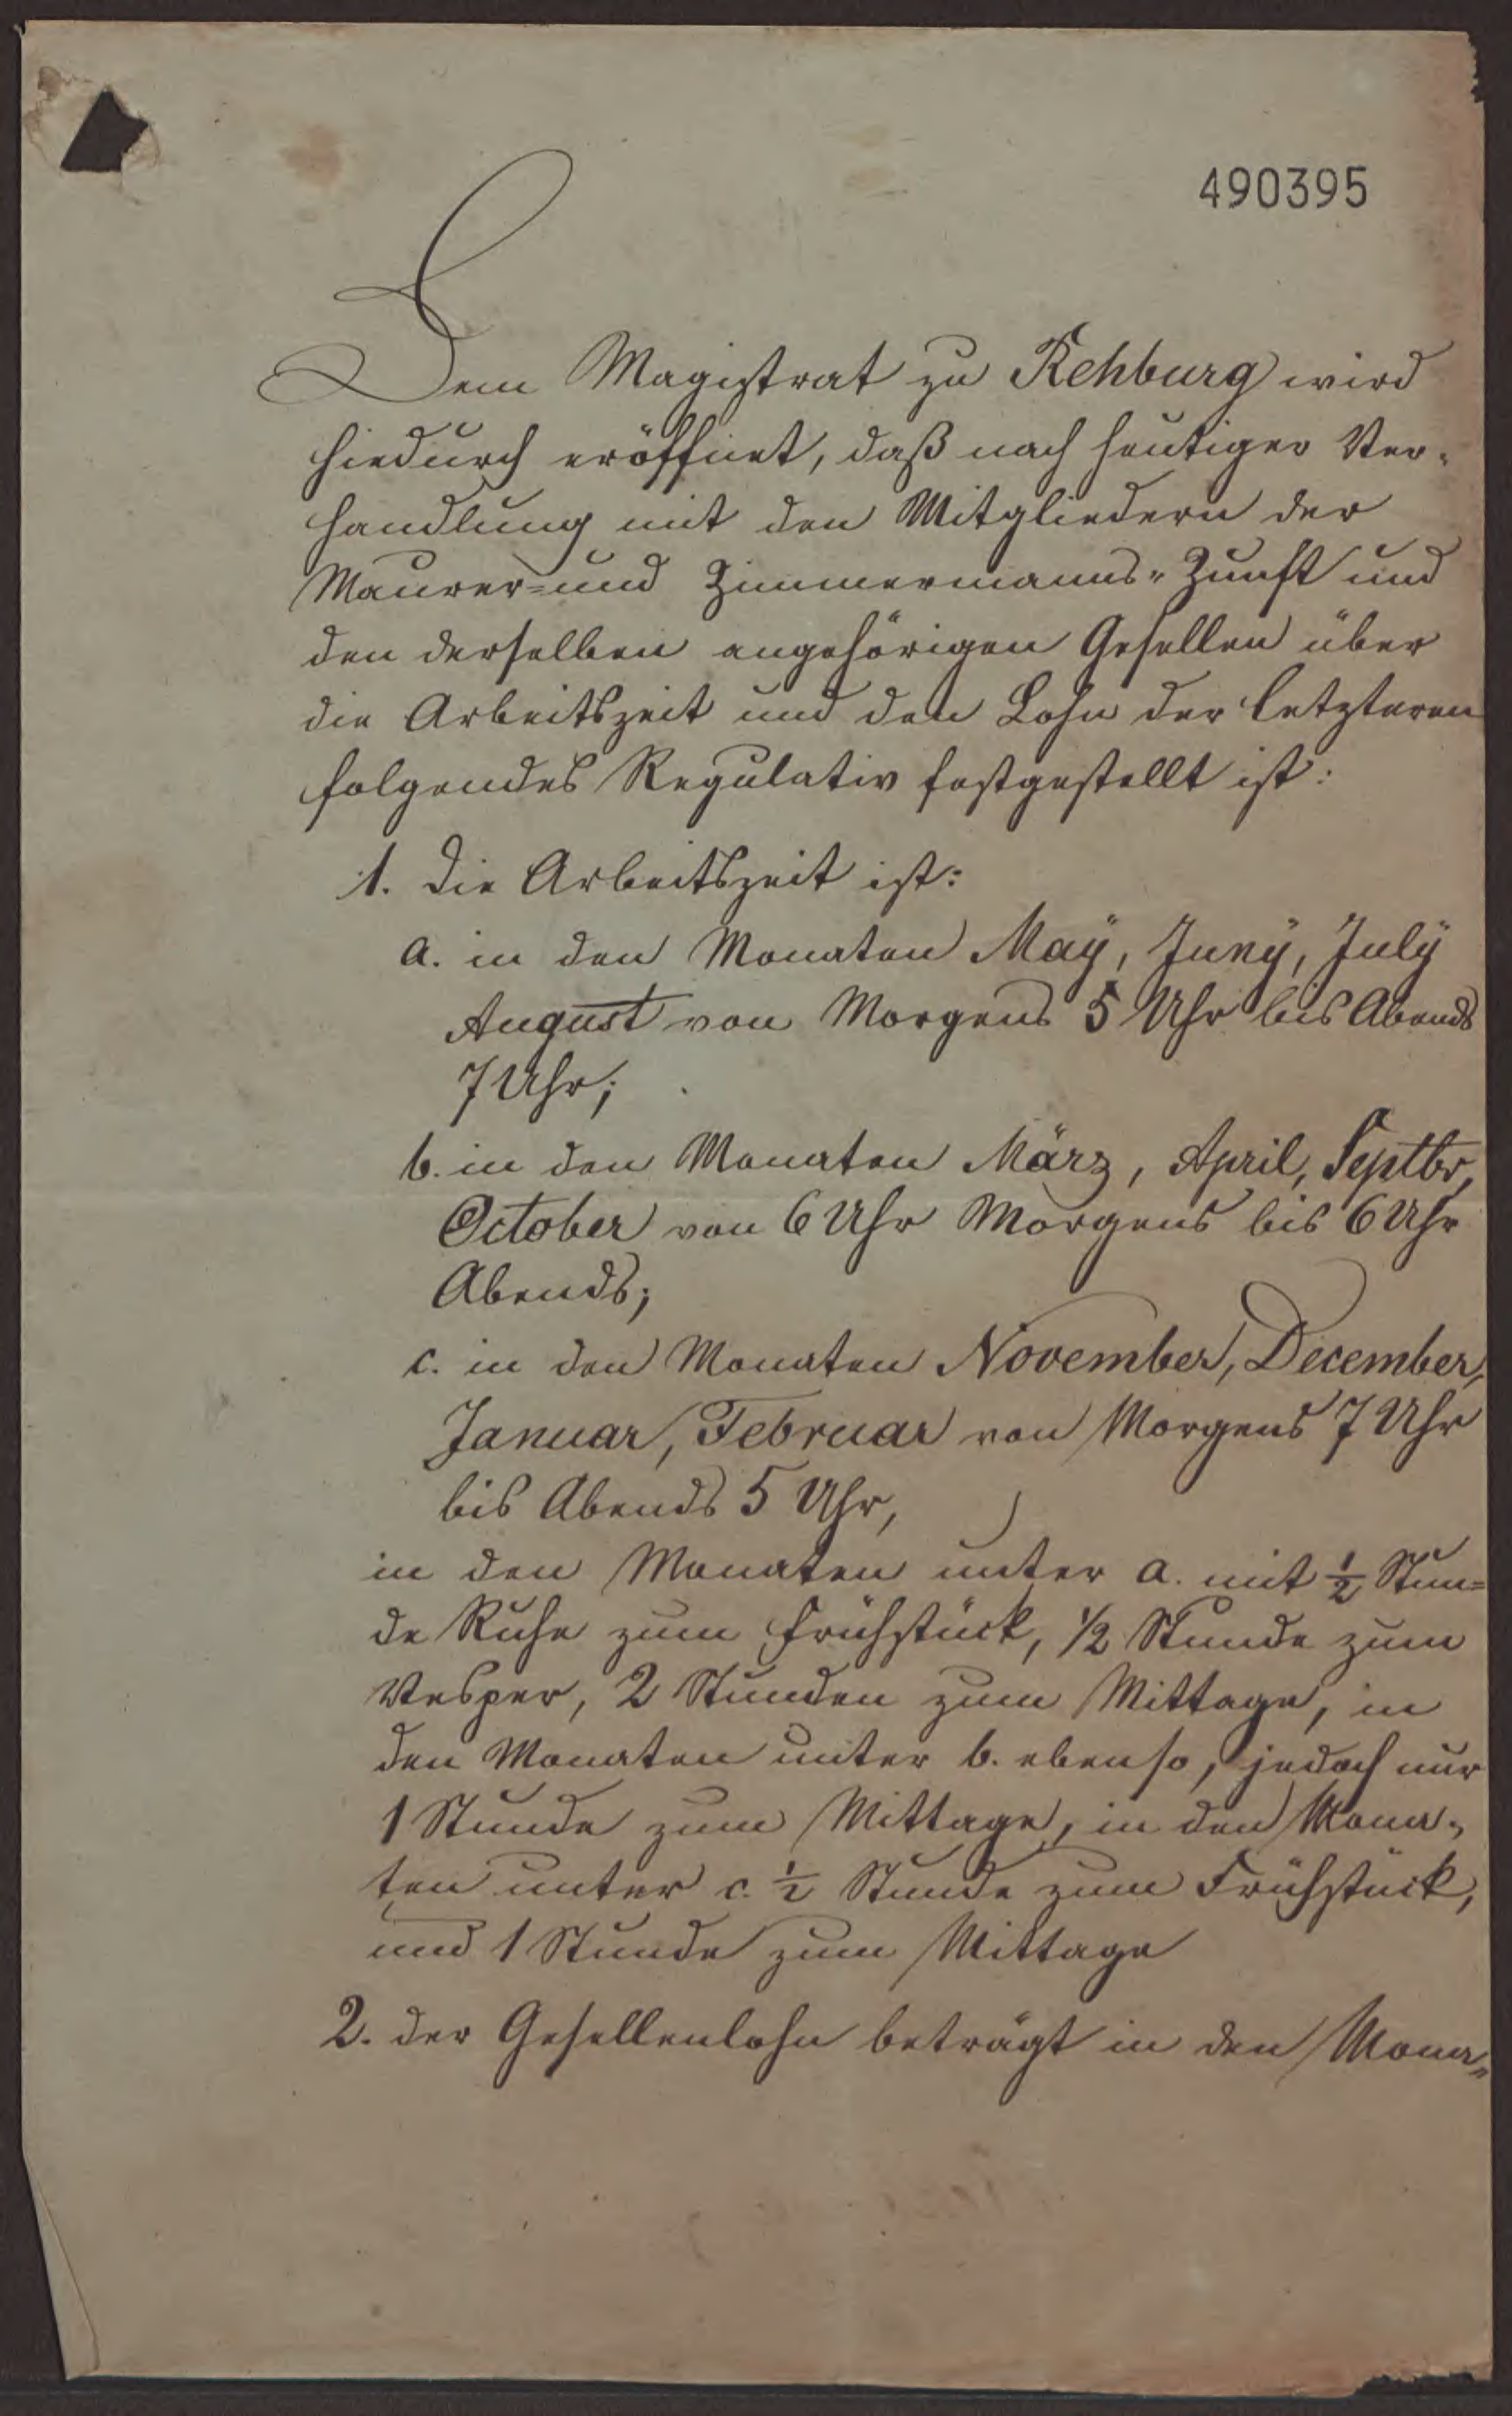 490395
Dem Magistrat zu Rehburg wird
hiedurch eröffnet, daß nach heutiger Ver-
handlung mit den Mitgliedern der
Maurer- und Zimmermanns-Zunft und
den derselben angehörigen Gesellen über
die Arbeitszeit und den Lohn der letzteren
folgendes Regulativ festgestellt ist:
1. die Arbeitszeit ist:
a. in den Monaten Maÿ, Junÿ, Julÿ
August von Morgens 5 Uhr bis Abends
7 Uhr;
b. in den Monaten März, April, Septbr,
October von 6 Uhr Morgens bis 6 Uhr
Abends;
c. in den Monaten November, December,
Januar, Februar von Morgens 7 Uhr
bis Abends 5 Uhr,
in den Monaten unter a. mit ½ Stun=
de Ruhe zum Frühstück, ½ Stunde zum
Vesper, 2 Stunden zum Mittage, in
den Monaten unter b. ebenso, jedoch nur
1 Stunde zum Mittage, in den Mona-
ten unter c. ½ Stunde zum Frühstück,
und 1 Stunde zum Mittage
2. der Gesellenlohn beträgt in den Mona-